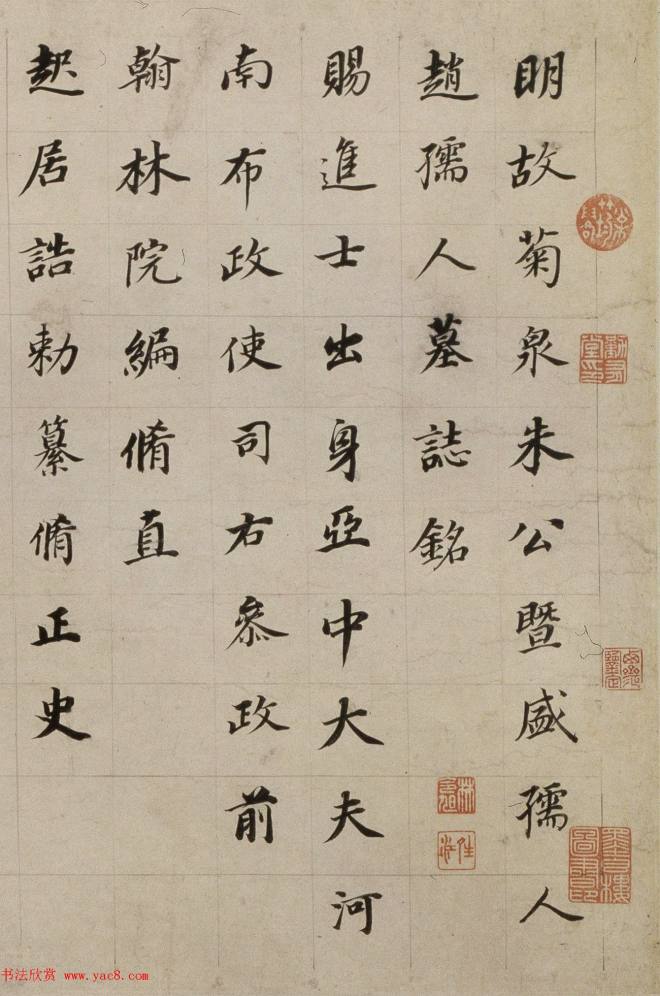 明故菊泉朱公暨盛孺人
趙孺人墓誌銘
賜進士出身亞中大夫河
南布政使司右叅政前
翰林院編脩直
起居誥勅纂脩正史
书法欣赏 www.yac8.com